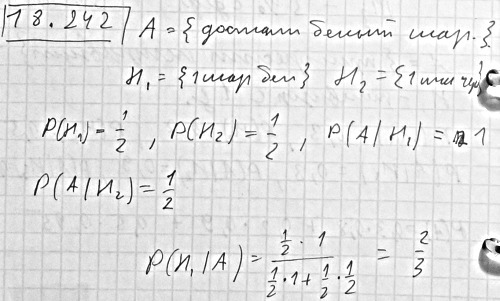 18.242 A = {достали белый шар.}
H₁ = {1 шар бел} H₂ = {1 шар чер}
P(H₁) = 1/2, P(H₂) = 1/2, P(A/H₁) = 1
P(A/H₂) = 1/2
P(H₁/A) = (1/2 · 1)/(1/2 · 1 + 1/2 · 1/2) = 2/3